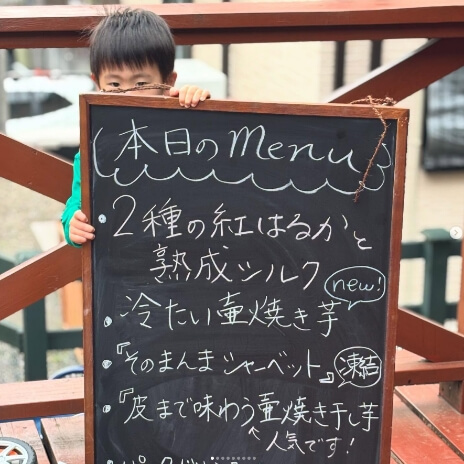 本日のMenu
・2種の紅はるかと
熟成シルク
・冷たい壷焼き芋 new!
・『そのまんまシャーベット』 凍結
・『皮まで味わう壷焼き干し芋
↖人気です!